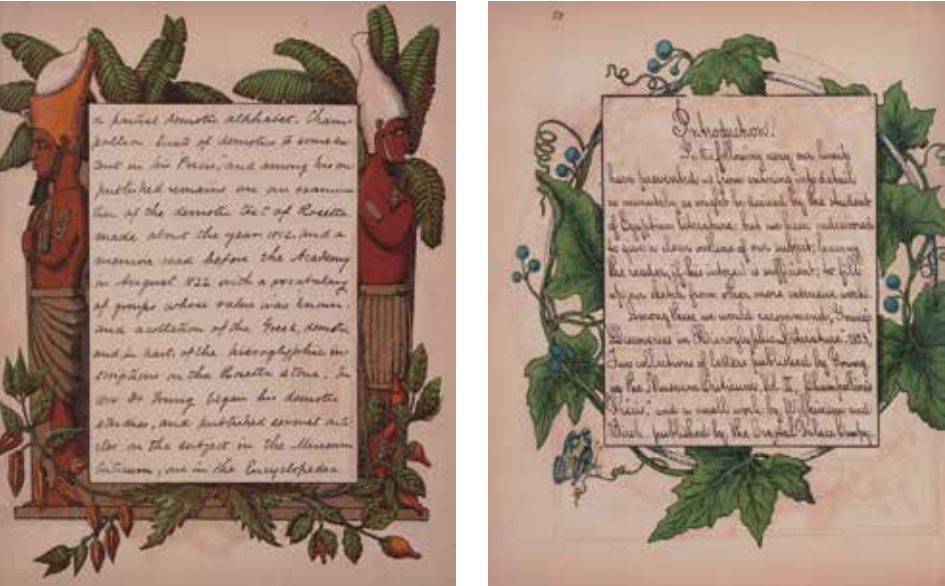 a partial demotic alphabet. Cham-
pollion treats of demotic to some ex-
tent in his Précis, and among his un
published remains are an examina-
tion of the demotic text of Rosetta
made about the year 1812, and a
memoire read before the Academy
in August 1822 with a vocabulary
of groups whose value was known.
and a collation of the Greek, demotic
and in part, of the hieroglyphic in
scriptions on the Rosetta stone. In
Dr Young began his demotic
studies, and published several arti-
cles on the subject in the Museum
Criticum, one in the Encyclopedia
Introduction.
In the following essay our limits
have prevented us from entering into detail
so minutely as might be desired by the student
of Egyptian Literature; but we have endeavored
to give a clear outline of our subject, leaving
the reader, if his interest is sufficient, to fill
up our sketch from other more extensive works.
Among these we would recommend, Young's
Discoveries in Hieroglyphic Literature, 1823,
Two collections of letters published by Young,
in the Museum Criticum, Vol. II, Champollion's
Précis, and a small work by Wilkinson and
Birch, published by the Crystal Palace Comp.